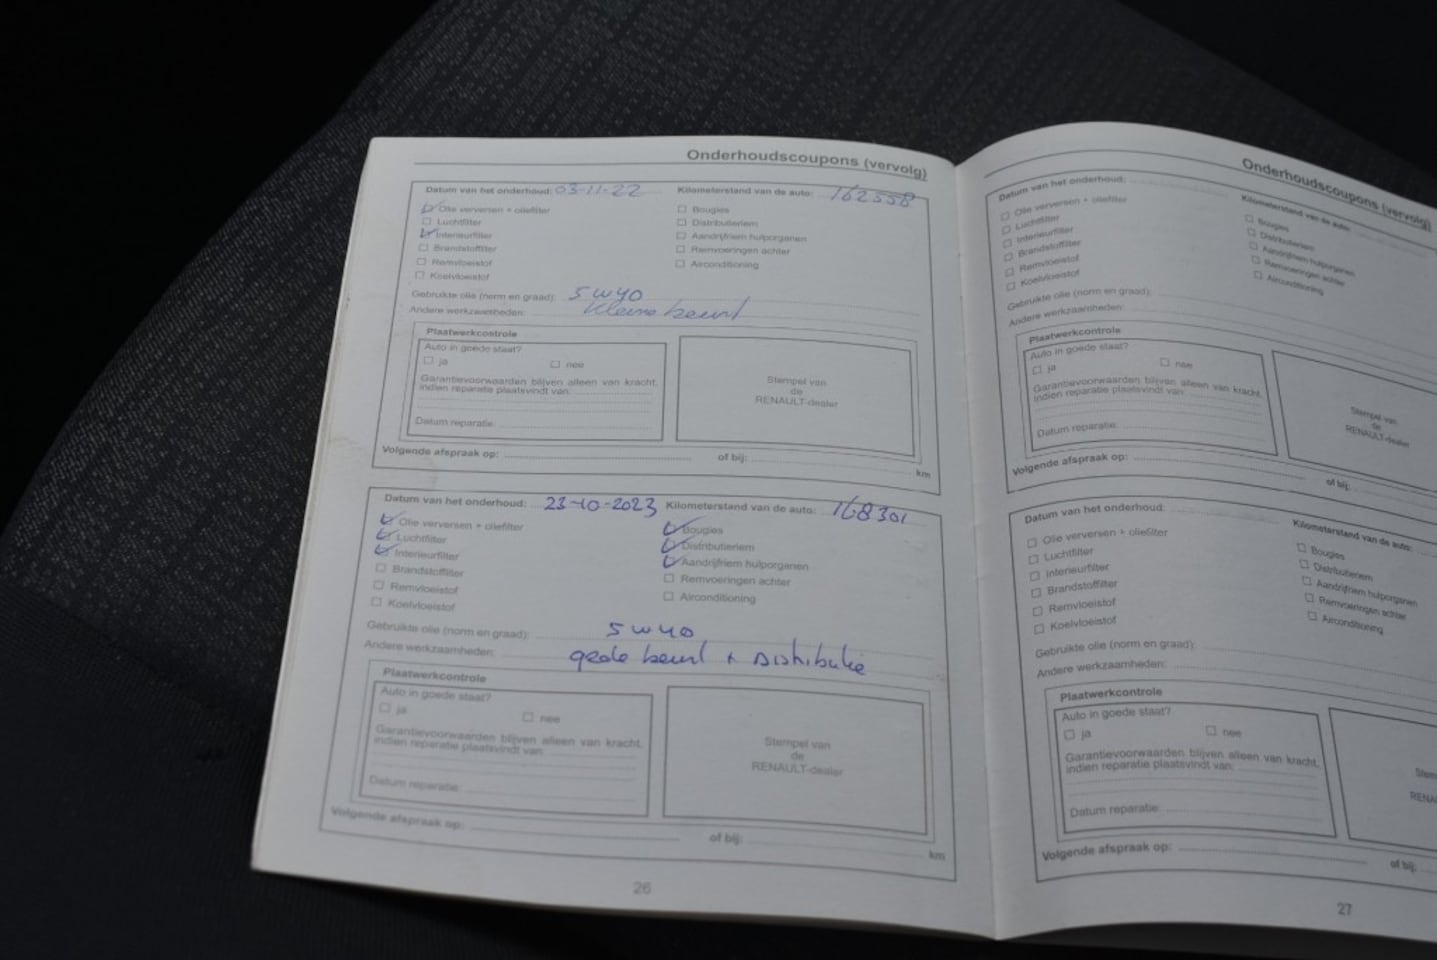 Onderhoudscoupons (vervolg)
Datum van het onderhoud: 03-11-22 Kilometerstand van de auto: 162558
Olie verversen + oliefilter Bougies
Luchtfilter Distributieriem
Interieurfilter Aandrijfriem hulporganen
Brandstoffilter Remvoeringen achter
Remvloeistof Airconditioning
Koelvloeistof
Gebruikte olie (norm en graad): 5W40
Andere werkzaamheden: kleine beurt
Plaatwerkcontrole
Auto in goede staat?
ja nee
Garantievoorwaarden blijven alleen van kracht,
indien reparatie plaatsvindt van:
Datum reparatie:
Stempel van
de
RENAULT-dealer
Volgende afspraak op: of bij: km
Datum van het onderhoud: 23-10-2023 Kilometerstand van de auto: 168301
Olie verversen + oliefilter Bougies
Luchtfilter Distributieriem
Interieurfilter Aandrijfriem hulporganen
Brandstoffilter Remvoeringen achter
Remvloeistof Airconditioning
Koelvloeistof
Gebruikte olie (norm en graad): 5W40
Andere werkzaamheden: grote beurt + Distributie
Plaatwerkcontrole
Auto in goede staat?
ja nee
Garantievoorwaarden blijven alleen van kracht,
indien reparatie plaatsvindt van:
Datum reparatie:
Stempel van
de
RENAULT-dealer
Volgende afspraak op: of bij: km
26
Onderhoudscoupons (vervolg)
Datum van het onderhoud: Kilometerstand van de auto:
Olie verversen + oliefilter Bougies
Luchtfilter Distributieriem
Interieurfilter Aandrijfriem hulporganen
Brandstoffilter Remvoeringen achter
Remvloeistof Airconditioning
Koelvloeistof
Gebruikte olie (norm en graad):
Andere werkzaamheden:
Plaatwerkcontrole
Auto in goede staat?
ja nee
Garantievoorwaarden blijven alleen van kracht,
indien reparatie plaatsvindt van:
Datum reparatie:
Stempel van
de
RENAULT-dealer
Volgende afspraak op: of bij:
Datum van het onderhoud: Kilometerstand van de auto:
Olie verversen + oliefilter Bougies
Luchtfilter Distributieriem
Interieurfilter Aandrijfriem hulporganen
Brandstoffilter Remvoeringen achter
Remvloeistof Airconditioning
Koelvloeistof
Gebruikte olie (norm en graad):
Andere werkzaamheden:
Plaatwerkcontrole
Auto in goede staat?
ja nee
Garantievoorwaarden blijven alleen van kracht,
indien reparatie plaatsvindt van:
Datum reparatie:
Stem
RENA
Volgende afspraak op: of bij:
27